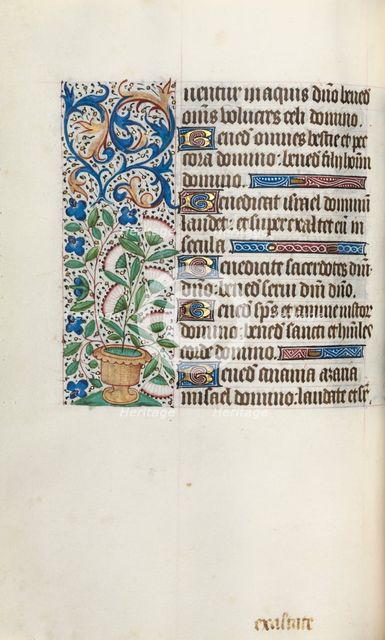 uentur in aquis dño bened
oms̃ uolucres celi domino.
Bened omnes bestie et pe
cora domino: bened filij hoĩm
domino.
Benedicat israel dominum
laudet: et superexaltet eũ in
secula
Benedicite sacerdotes dñi
dño: bened serui dñi dño.
Bened sp̃s et anime iustor
domino: bened sancti et hũiles
corde domino.
Bened anania azaria
misael domino: laudate et
exaltate
heritage
Heritage
Heritage